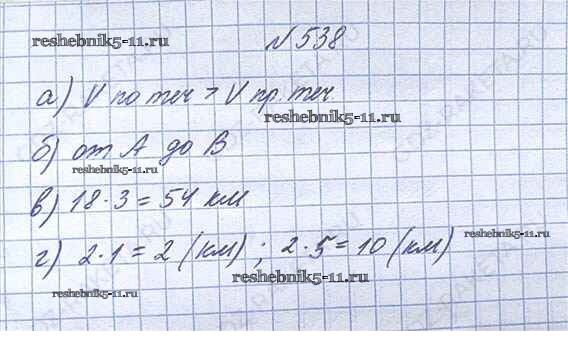 reshebnik5-11.ru
№538
а) V по теч > V пр. теч.
reshebnik5-11.ru
б) от А до В
reshebnik5-11.ru
в) 18·3=54 км
reshebnik5-11.ru
г) 2·1=2 (км); 2·5=10 (км)
reshebnik5-11.ru
reshebnik5-11.ru